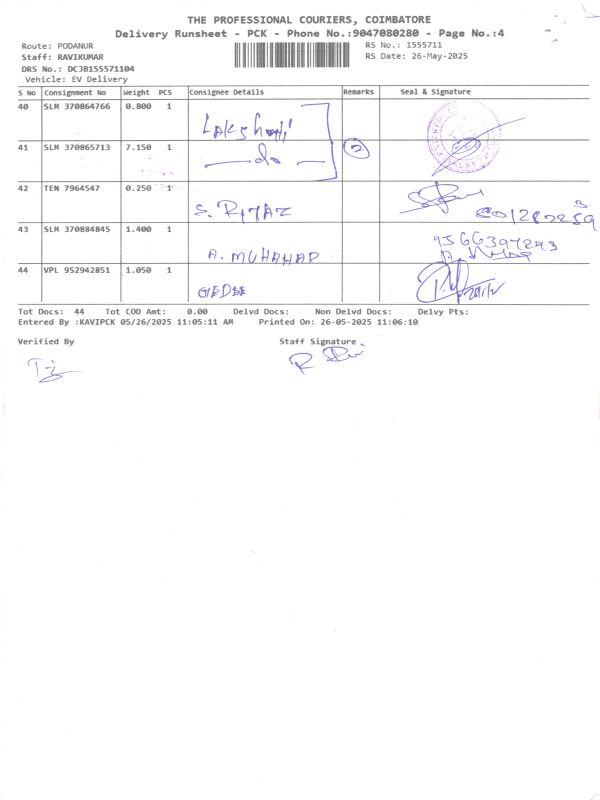 THE PROFESSIONAL COURIERS, COIMBATORE
Delivery Runsheet - PCK - Phone No.:9047080280 - Page No.:4
Route: PODANUR
Staff: RAVIKUMAR
DRS No.: DCJB155571104
Vehicle: EV Delivery
RS No.: 1555711
RS Date: 26-May-2025
S No Consignment No Weight PCS Consignee Details Remarks Seal & Signature
40 SLM 370864766 0.800 1 Lakshmi
41 SLM 370865713 7.150 1 —do— 2
42 TEN 7964547 0.250 1 S. RIJAZ
43 SLM 370884845 1.400 1 A. MUHAHAD 9566397293
44 VPL 952942851 1.050 1 GEDEE
Tot Docs: 44 Tot COD Amt: 0.00 Delvd Docs: Non Delvd Docs: Delvy Pts:
Entered By :KAVIPCK 05/26/2025 11:05:11 AM Printed On: 26-05-2025 11:06:10
Verified By Staff Signature